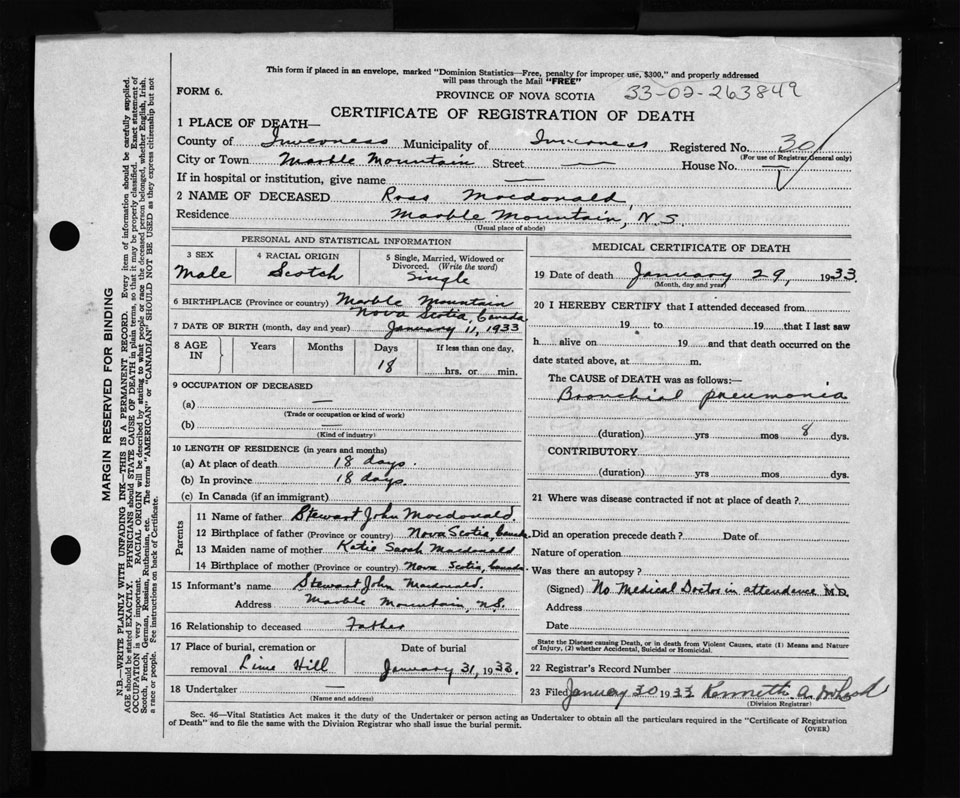 This form if placed in an envelope, marked "Dominion Statistics—Free, penalty for improper use, $300," and properly addressed
will pass through the Mail "FREE"
FORM 6.
PROVINCE OF NOVA SCOTIA 33-02-263849
CERTIFICATE OF REGISTRATION OF DEATH
1 PLACE OF DEATH—
County of Inverness Municipality of Inverness Registered No. 30
(For use of Registrar General only)
City or Town Marble Mountain Street — House No. —
If in hospital or institution, give name —
2 NAME OF DECEASED Ross Macdonald,
Residence Marble Mountain, N.S.
(Usual place of abode)
PERSONAL AND STATISTICAL INFORMATION
3 SEX 4 RACIAL ORIGIN 5 Single, Married, Widowed or
Divorced. (Write the word)
Male Scotch Single
6 BIRTHPLACE (Province or country) Marble Mountain
Nova Scotia, Canada
7 DATE OF BIRTH (month, day and year) January 11, 1933
8 AGE IN Years Months Days If less than one day,
18 hrs. or min.
9 OCCUPATION OF DECEASED
(a) —
(Trade or occupation or kind of work)
(b) —
(Kind of industry)
10 LENGTH OF RESIDENCE (in years and months)
(a) At place of death 18 days.
(b) In province 18 days.
(c) In Canada (if an immigrant)
Parents
11 Name of father Stewart John Macdonald.
12 Birthplace of father (Province or country) Nova Scotia, Canada
13 Maiden name of mother Katie Sarah Macdonald
14 Birthplace of mother (Province or country) Nova Scotia, Canada.
15 Informant's name Stewart John Macdonald.
Address Marble Mountain, N.S.
16 Relationship to deceased Father
17 Place of burial, cremation or Date of burial
removal Lime Hill January 31, 1933.
18 Undertaker —
(Name and address)
MEDICAL CERTIFICATE OF DEATH
19 Date of death January 29, 1933.
(Month, day and year)
20 I HEREBY CERTIFY that I attended deceased from
19 to 19 that I last saw
h alive on 19 and that death occurred on the
date stated above, at m.
The CAUSE OF DEATH was as follows:—
Bronchial pneumonia
(duration) yrs mos 8 dys.
CONTRIBUTORY
(duration) yrs mos dys.
21 Where was disease contracted if not at place of death ?
Did an operation precede death ? Date of
Nature of operation
Was there an autopsy ?
(Signed) No Medical Doctor in attendance M.D.
Address
Date
State the Disease causing Death, or in death from Violent Causes, state (1) Means and Nature
of Injury, (2) whether Accidental, Suicidal or Homicidal.
22 Registrar's Record Number
23 Filed January 30 1933 Kenneth A.
(Division Registrar)
Sec. 46—Vital Statistics Act makes it the duty of the Undertaker or person acting as Undertaker to obtain all the particulars required in the "Certificate of Registration
of Death" and to file the same with the Division Registrar who shall issue the burial permit.
(OVER)
MARGIN RESERVED FOR BINDING
N.B.—WRITE PLAINLY WITH UNFADING INK—THIS IS A PERMANENT RECORD. Every item of information should be carefully supplied.
AGE should be stated EXACTLY. PHYSICIANS should STATE CAUSE OF DEATH in plain terms, so that it may be properly classified. Exact statement of
OCCUPATION is very important. RACIAL ORIGIN will be described by stating to what people or race the deceased person belonged, whether English, Irish,
Scotch, French, German, Russian, Ruthenian, etc. The terms "AMERICAN" or "CANADIAN" SHOULD NOT BE USED as they express citizenship but not
a race or people. See instructions on back of Certificate.